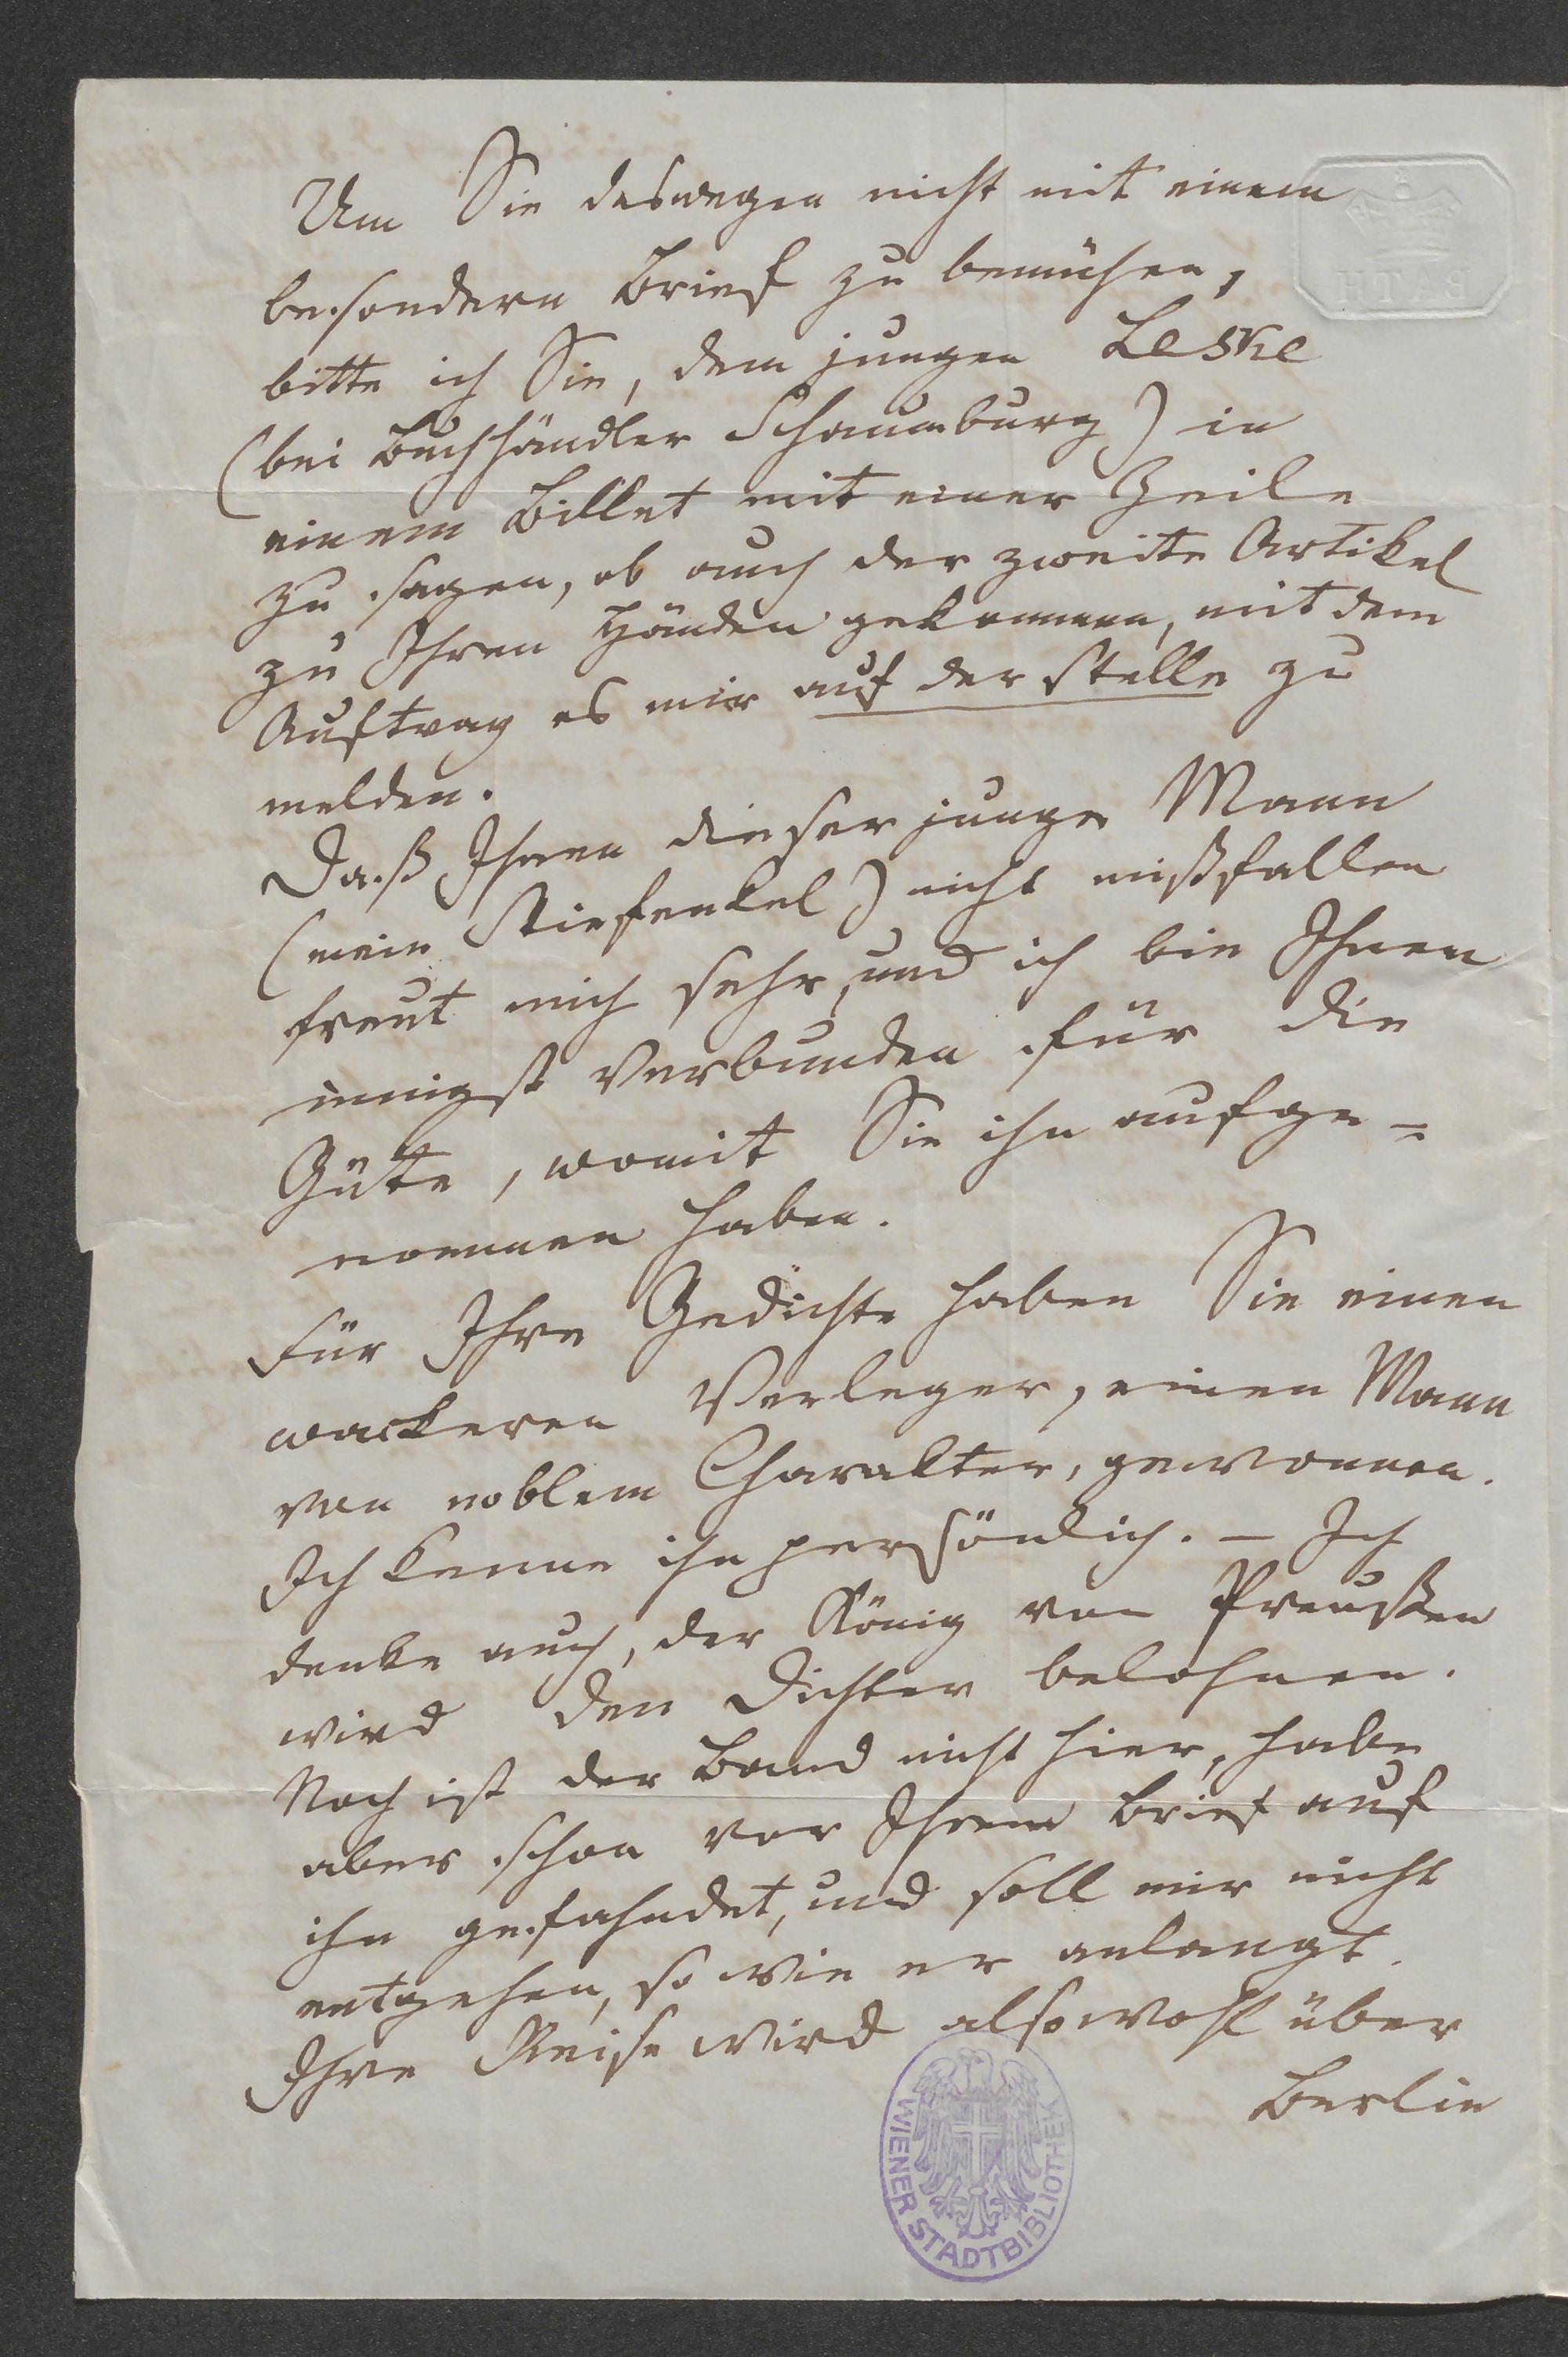 Um Sie deswegen nicht mit einem
besondern Brief zu bemühen,
bitte ich Sie, dem jungen Leske
(bei Buchhändler Schaumburg) in
einem Billet mit einer Zeile
zu sagen, ob auch der zweite Artikel
zu Ihren Händen gekommen, mit dem
Auftrag es mir auf der Stelle zu
melden.
Daß Ihnen dieser junge Mann
(mein Stiefenkel) nicht mißfallen
freut mich sehr, und ich bin Ihnen
innigst verbunden für die
Güte, womit Sie ihn aufge=
nommen haben.
Für Ihre Gedichte haben Sie einen
wackeren Verleger, einen Mann
von noblem Charakter, gewonnen.
Ich kenne ihn persönlich. – Ich
denke auch, der König von Preußen
wird den Dichter belohnen.
Noch ist der Band nicht hier, habe
aber schon vor Ihrem Brief auf
ihn gefahndet, und soll mir nicht
entgehen, so wie er anlangt.
Ihre Reise wird also wohl über
Berlin
WIENER STADTBIBLIOTHEK
BATH